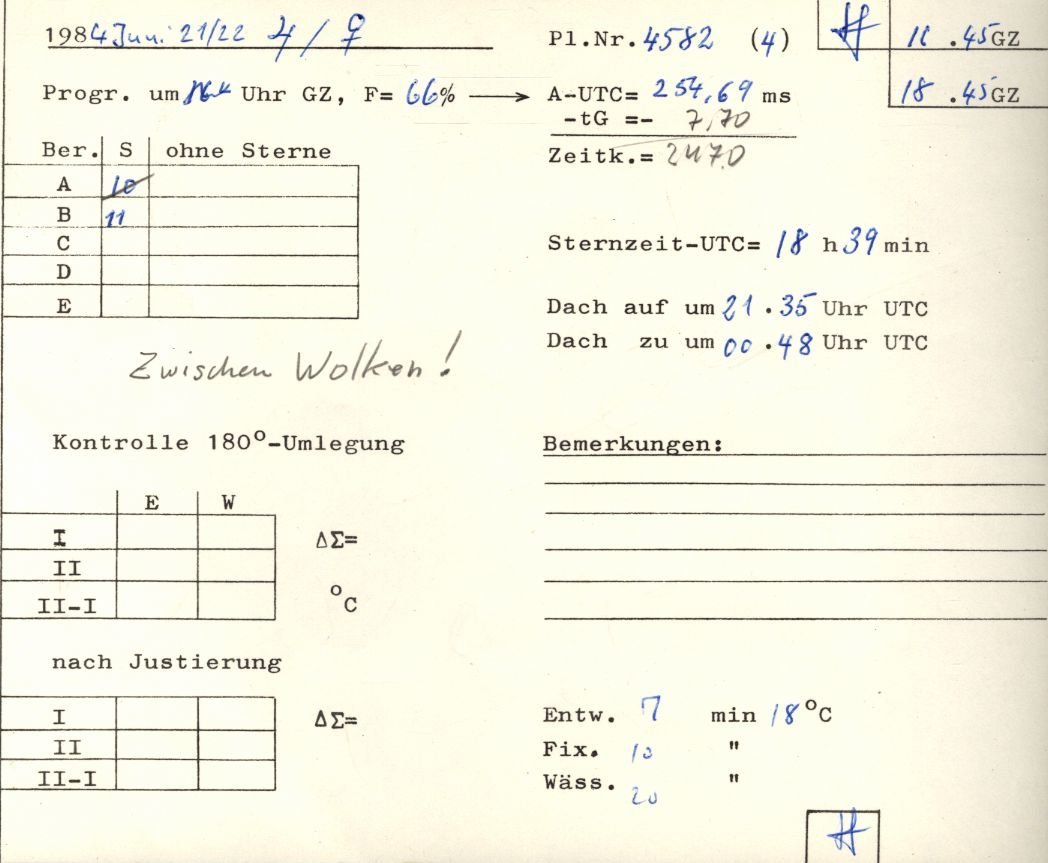 1984 Juni 21/22 ♃ / ♀
Pl.Nr. 4582 (4)
18 .45 GZ
Progr. um Uhr GZ, F= 66% → A-UTC= 254,69 ms
-tG =- 7,70
Zeitk.= 2470
Ber. S ohne Sterne
A 10
B 11
C
D
E
Sternzeit-UTC= 18 h 39 min
Dach auf um 21 .35 Uhr UTC
Dach zu um 00 .48 Uhr UTC
Zwischen Wolken!
Kontrolle 180°-Umlegung
Bemerkungen:
E W
I ΔΣ=
II
II-I °C
nach Justierung
I ΔΣ=
II
II-I
Entw. 7 min 18 °C
Fix. 10 "
Wäss. 20 "